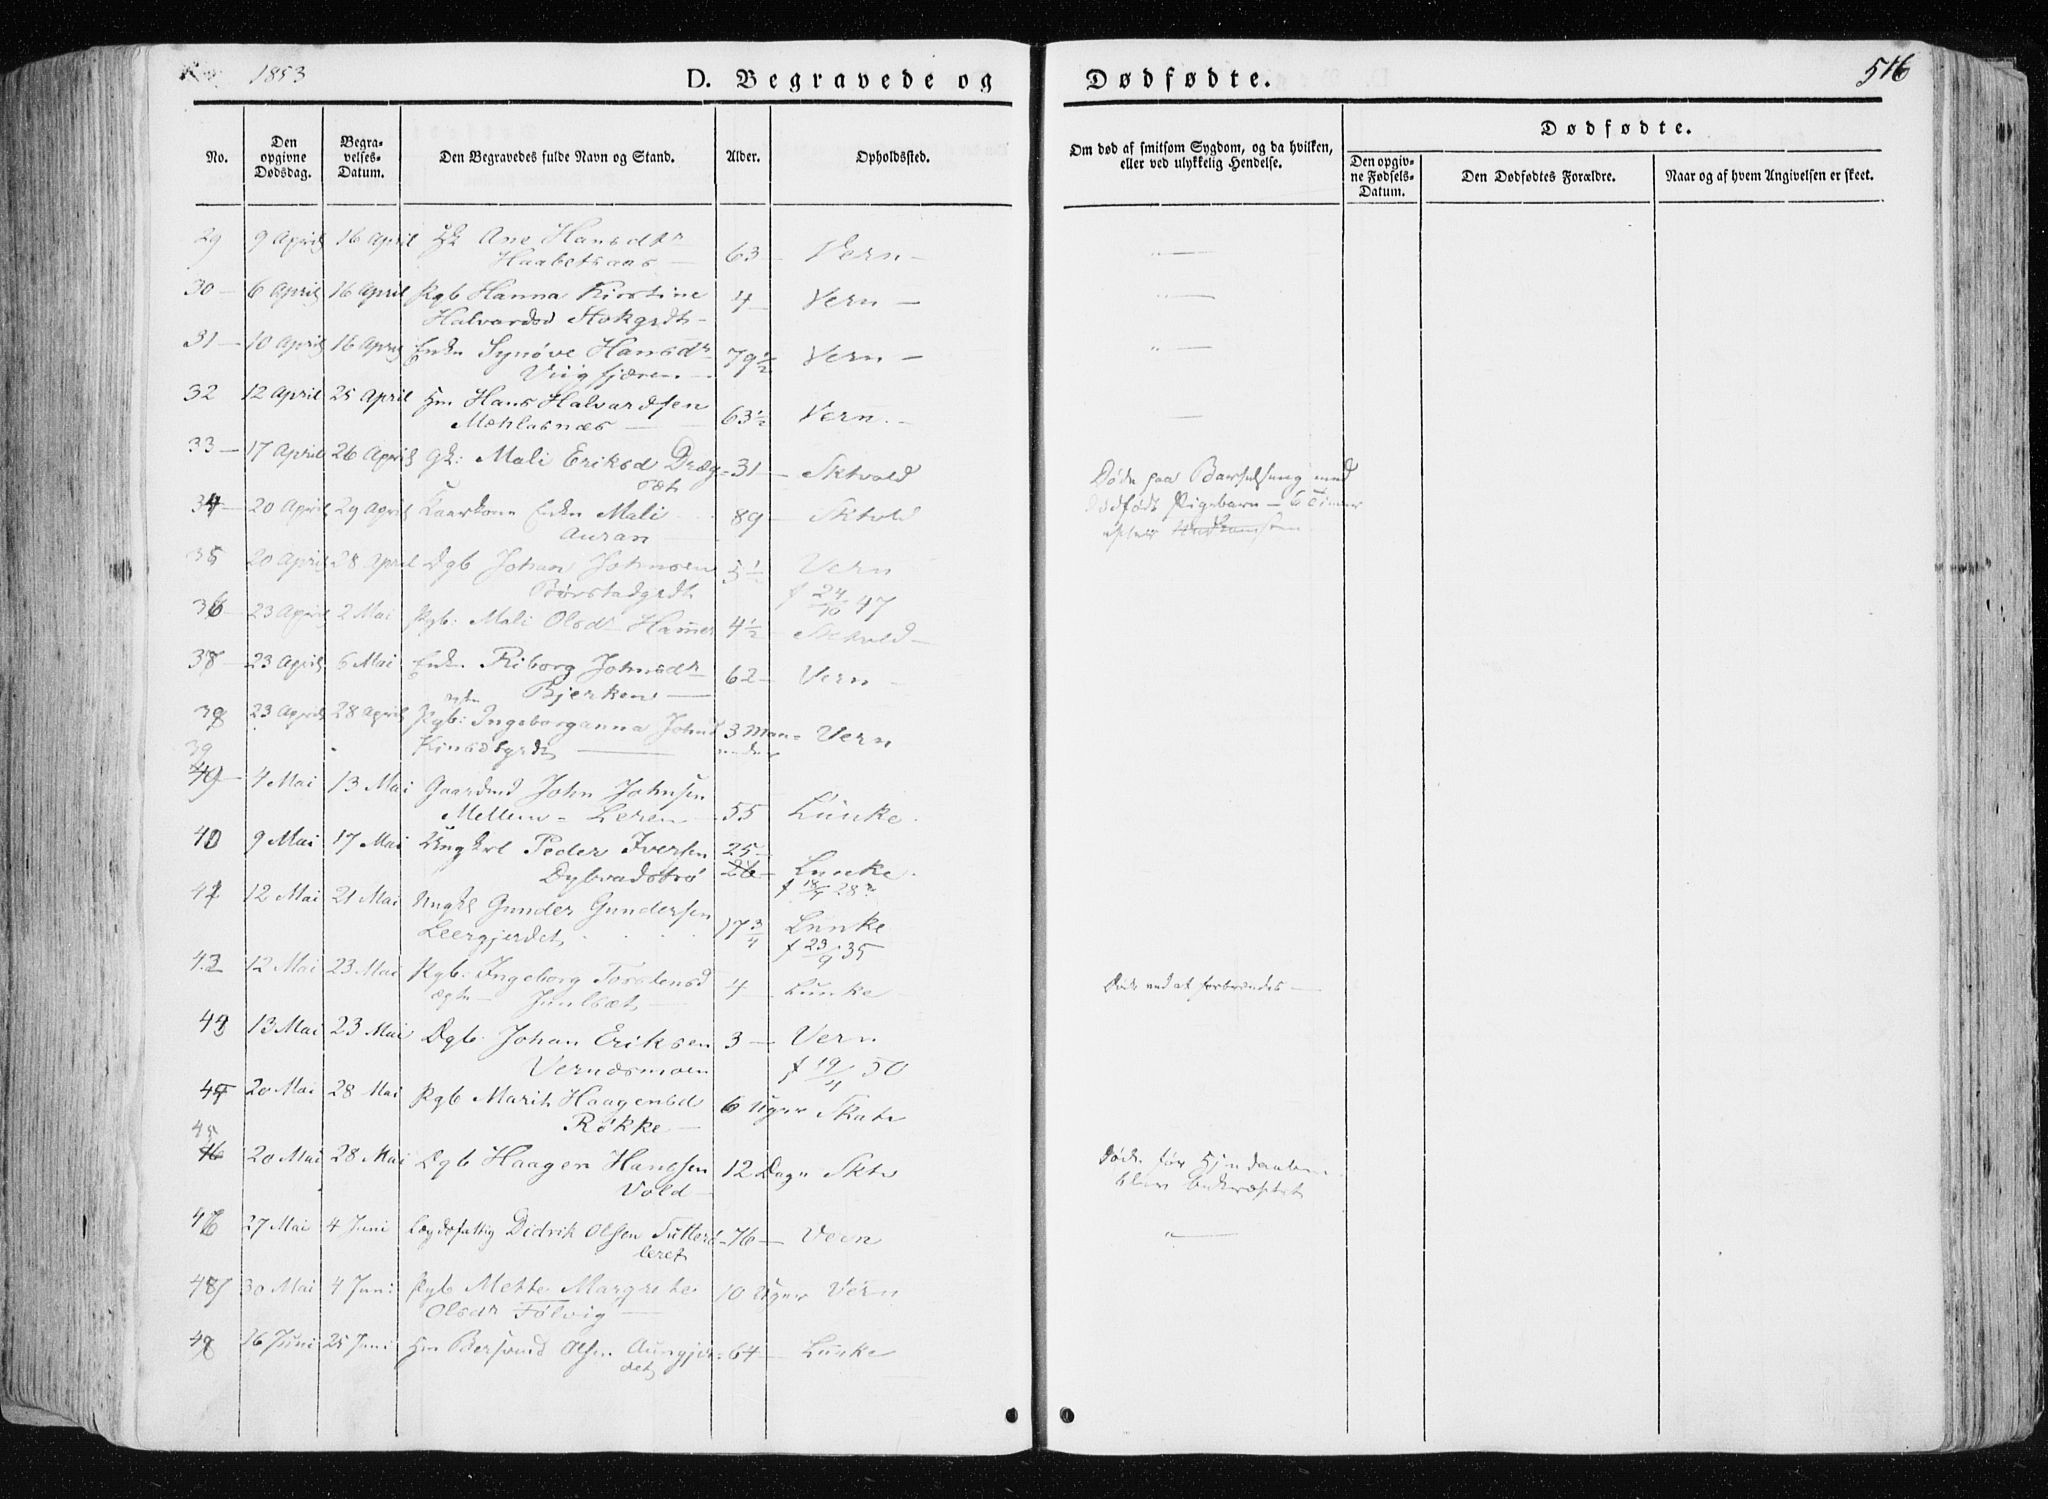 1853
D. Begravede og
Dødfødte.
516
No.
Den opgivne Dødsdag.
Begravelses-Datum.
Den Begravedes fulde Navn og Stand.
Alder.
Opholdssted.
Om død af smitsom Sygdom, og da hvilken, eller ved ulykkelig Hendelse.
Dødfødte.
Den opgivne Fødsels-Datum.
Den Dødfødtes Forældre.
Naar og af hvem Angivelsen er skeet.
29 9 April 16 April Ane Hansdtr 63 — Vern —
30 — 6 April 16 April Pgb Hanna Kirstine 4 — Vern —
Halvardsd
31 — 10 April 16 April Enke Synøve Hansdr 79½ Vern —
32 12 April 25 April Hans Halvardsen 63½ Vern —
Mæhlasnæs —
33 — 17 April 26 April Mali Eriksd Dræg- 31 — Sktvold
sæt
Døde paa Barselseng med
dødfødt Pigebarn — 6 Timer
34 — 20 April 29 April Enke Mali 89 — Sktvold
Auran
35 20 April 28 April Dgb Johan Johnsen 5½ Vern
f 24/10 47
36 23 April 2 Mai Pgb: Mali Olsdr Ham̄er 4½ Sktvold —
37 — 23 April 6 Mai Enke Riborg Johnsdr 62 — Vern —
Bjerken —
38 23 April 28 April Pgb: Ingeborganna Johnsd 3 Maa- Vern
neder
39
4 Mai 13 Mai Gaardmd John Johnsen
Mellem-Leren — 55 Lunke.
40 9 Mai 17 Mai Ungkrl Peder Iversen 25 —
Dybvadstrø 26 — Lunke.
12 Mai 21 Mai Ungkl Gunder Gundersen 17¾ Lunke
Leergjerdet
f 23/9 35
42 12 Mai 23 Mai Pgb: Ingeborg Torstensd 4 — Lunke
ægte —
Døde ved at forbrændes —
43 13 Mai 23 Mai Dgb. Johan Eriksen 3 — Vern
Vernesmoen f 19/4 50
44 20 Mai 28 Mai Pgb Marit Haagensd 6 Uger Skatv
Røkke —
45
46 20 Mai 28 Mai Dgb Haagen Hansen 12 Dage Sktv
Vold —
Døde før Hjemdaaben
blev bekræftet
46 27 Mai 4 Juni Lægdsfattig Didrik Olsen 76 — Vern
leret
30 Mai 4 Juni Pgb Mette Margrete 10 Uger Vern
Olsdr Følvig —
48 16 Juni 25 Juni Olsen Aungjer- 64 — Lunke
det